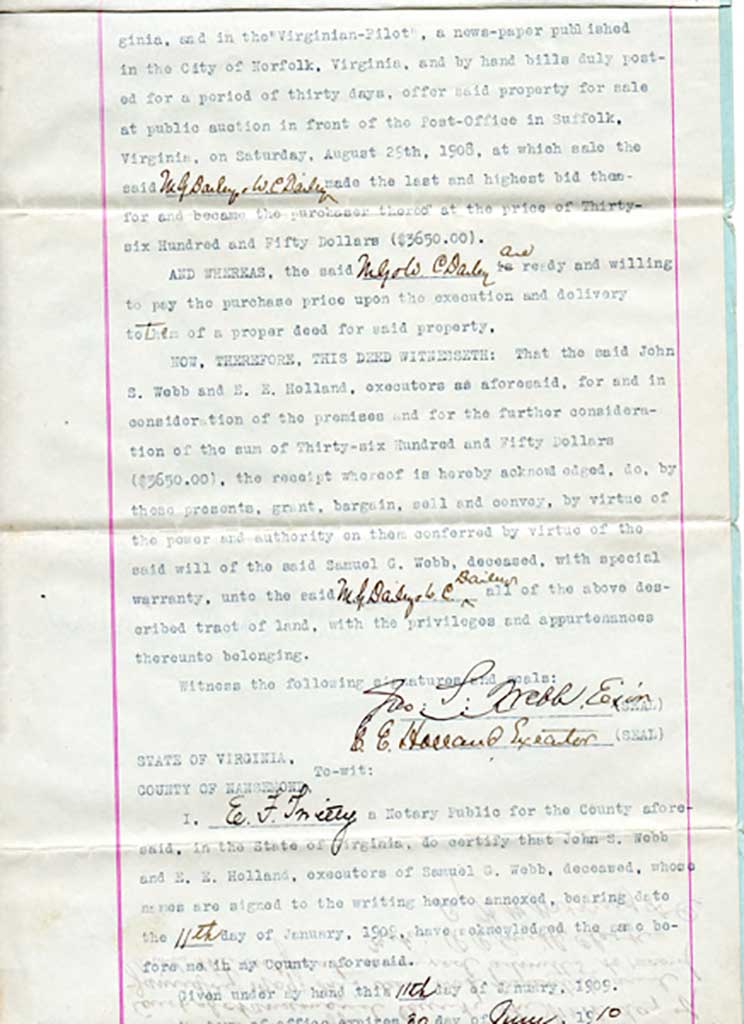 ginia, and in the"Virginian-Pilot", a news-paper published
in the City of Norfolk, Virginia, and by hand bills duly post-
ed for a period of thirty days, offer said property for sale
at public auction in front of the Post-Office in Suffolk,
Virginia, on Saturday, August 29th, 1908, at which sale the
said M G Dailey & W. C Dailey made the last and highest bid there-
for and became the purchaser thereof at the price of Thirty-
six Hundred and Fifty Dollars ($3650.00).
AND WHEREAS, the said M G & W. C Dailey are is ready and willing
to pay the purchase price upon the execution and delivery
to them of a proper deed for said property,
NOW, THEREFORE, THIS DEED WITNESSETH: That the said John
S. Webb and E. E. Holland, executors as aforesaid, for and in
consideration of the premises and for the further considera-
tion of the sum of Thirty-six Hundred and Fifty Dollars
($3650.00), the receipt whereof is hereby acknowledged, do, by
these presents, grant, bargain, sell and convey, by virtue of
the power and authority on them conferred by virtue of the
said will of the said Samuel G. Webb, deceased, with special
warranty, unto the said M. G Dailey & W. C Dailey all of the above des-
cribed tract of land, with the privileges and appurtenances
thereunto belonging.
Witness the following signatures and seals:
Jno. S. Webb, Exor (SEAL)
E. E. Holland Executor (SEAL)
STATE OF VIRGINIA,
To-wit:
COUNTY OF NANSEMOND,
I, E. F. a Notary Public for the County afore-
said, in the State of Virginia, do certify that John S. Webb
and E. E. Holland, executors of Samuel G. Webb, deceased, whose
names are signed to the writing hereto annexed, bearing date
the 11th day of January, 1909, have acknowledged the same be-
fore me in my County aforesaid.
Given under my hand this 11th day of January, 1909.
of office expires 20 day of June, 1910